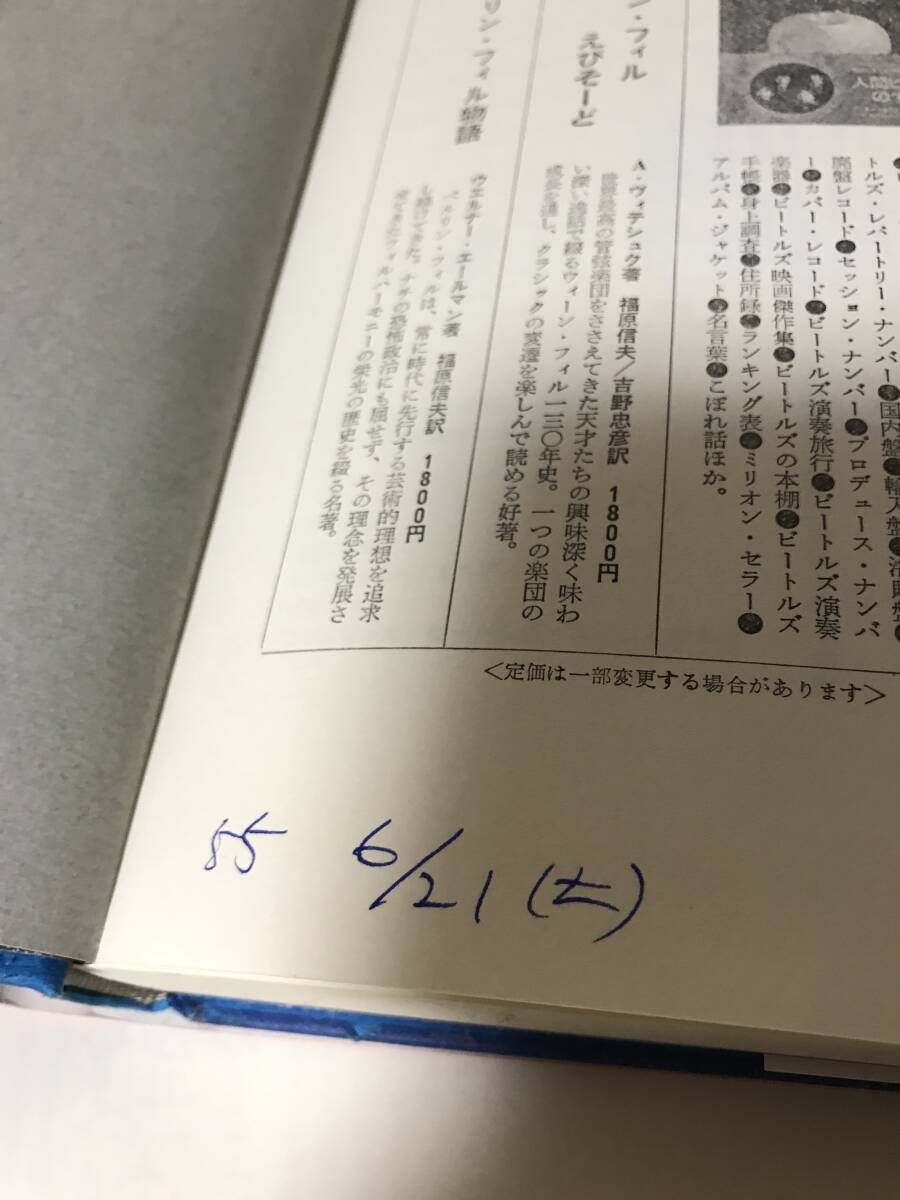 トルズ・レパートリー・ナンバー●国内盤●輸入盤●
廃盤レコード●セッション・ナンバー●プロデュース・ナンバ
ー●カバー・レコード●ビートルズ演奏旅行●ビートルズ演奏
楽器●ビートルズ映画傑作集●ビートルズの本棚●ビートルズ
手帳●身上調査●住所録●ランキング表●ミリオン・セラー●
アルバム・ジャケット●名言葉●こぼれ話ほか。
ン・フィル
えぴそーど
A・ヴィテシュク著 福原信夫/吉野忠彦訳 1800円
世界最高の管弦楽団をささえてきた天才たちの興味深く味わ
い深い逸話で綴るウィーン・フィル一三〇年史。一つの楽団の
成長を通し、クラシックの変遷を楽しんで読める好著。
リン・フィル物語
ヴェルナー・エールマン著 福原信夫訳 1800円
ベルリン・フィルは、常に時代に先行する芸術的理想を追求
し続けてきた。ナチの恐怖政治にも屈せず、その理念を発展さ
せてきたフィルハーモニーの栄光の歴史を綴る名著。
<定価は一部変更する場合があります>
55 6/21(土)